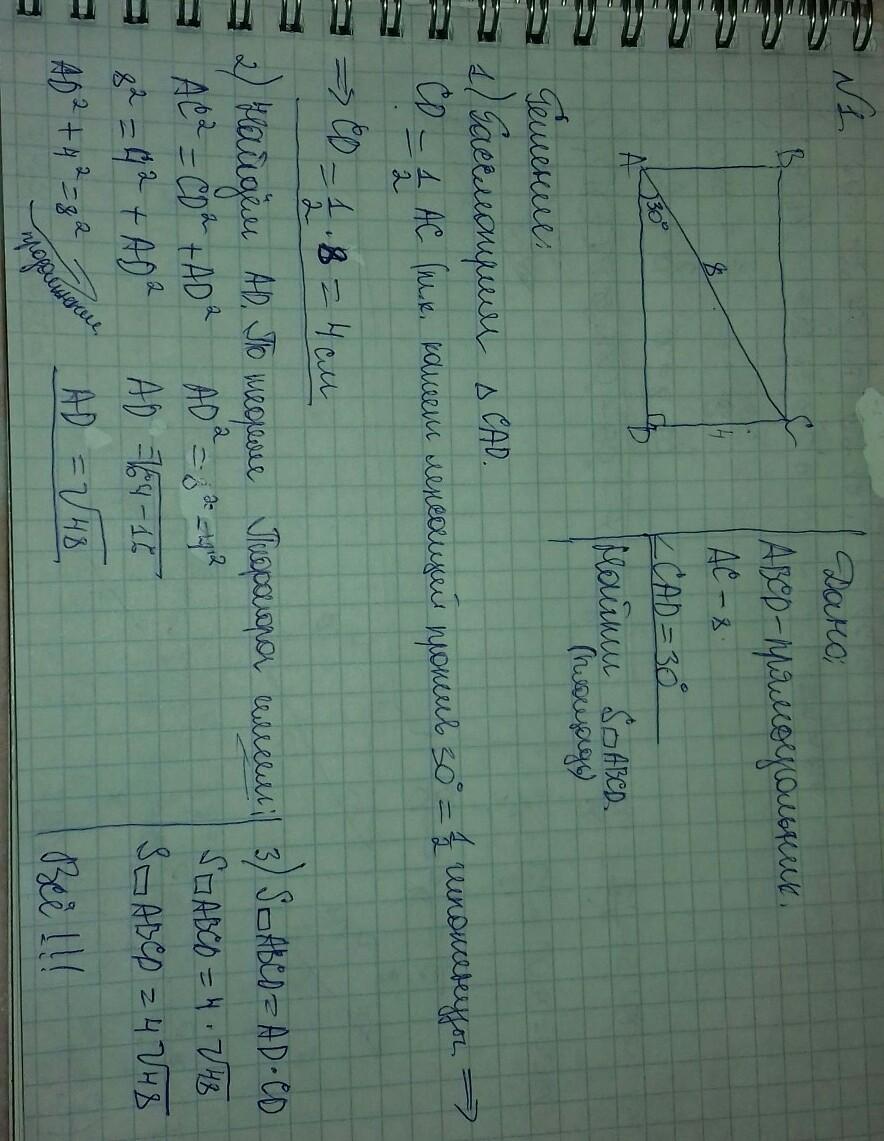 N1.
B
C
A
D
30°
8
4
Дано:
ABCD-прямоугольник.
AC - 8.
∠CAD = 30°
Найти S□ABCD.
(площадь)
Решение:
1) Рассмотрим △ CAD.
CD = 1/2 AC (т.к. катет лежащий против 30° = 1/2 гипотенузы. ⟹
⟹ CD = 1/2 · 8 = 4 см
2) Найдём AD. По теореме Пифагора имеем:
AC² = CD² + AD²
8² = 4² + AD²
AD² + 4² = 8²
продолжение
AD² = 8² - 4²
AD = √64-16
AD = √48
3) S□ABCD = AD · CD
S□ABCD = 4 · √48
S□ABCD = 4√48
Всё!!!